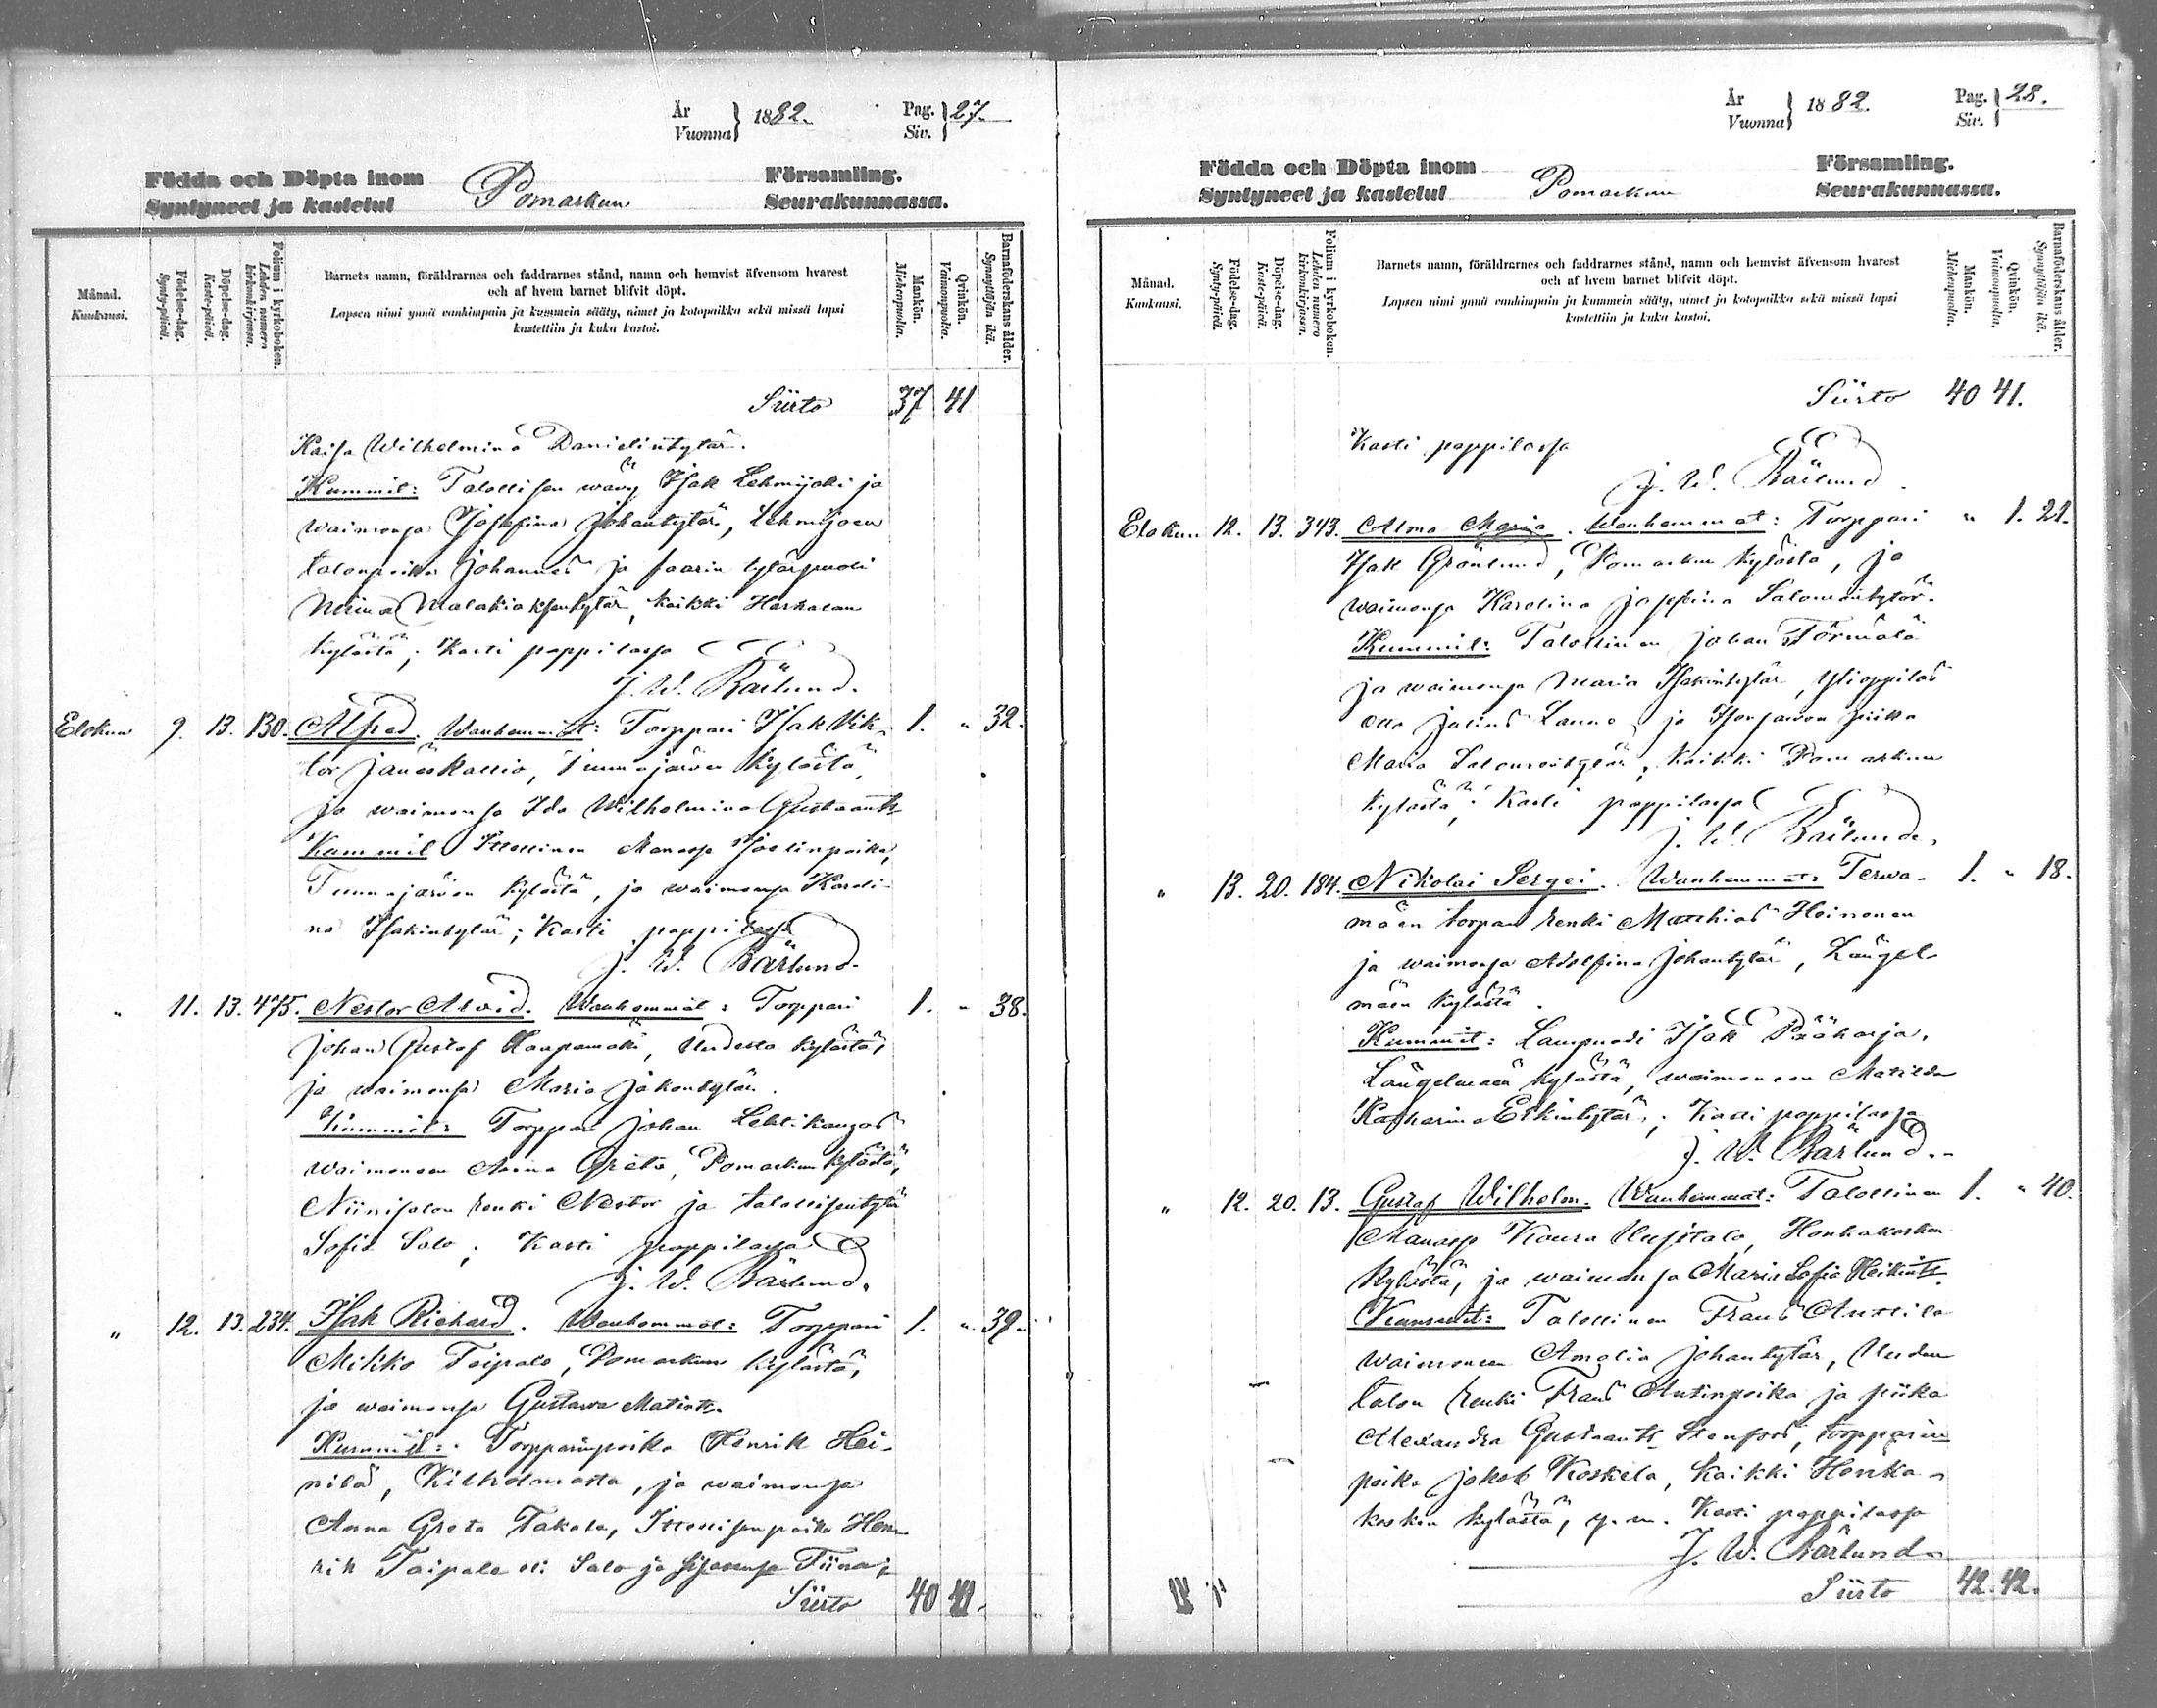 År
Vuonna } 1882.
Pag.
Siv. } 27.
Födda och Döpta inom
Syntyneet ja kastetut
Pomarkun
Församling.
Seurakunnassa.
Månad.
Kuukausi.
Födelse-dag.
Synty-päivä.
Döpelse-dag.
Kaste-päivä.
Folium i kyrkoboken.
Lehden numero kirkonkirjassa.
Barnets namn, föräldrarnes och faddrarnes stånd, namn och hemvist äfvensom hvarest
och af hvem barnet blifvit döpt.
Lapsen nimi ynnä vanhimpain ja kummein sääty, nimet ja kotopaikka sekä missä lapsi
kastettiin ja kuka kastoi.
Mankön.
Miehenpuolia.
Qvinkön.
Vaimonpuolia.
Barnaföderskans ålder.
Synnyttäjän ikä.
Siirto 37 41
Kaisa Wilhelmina Danielintytär.
Kummit: Talollisen wävy Isak Lehmijoki ja
waimonsa Josefina Johantytär, Lehmijoen
talonpoika Johannes ja faarin tytärpuoli
Miina Malakiaksentytär, kaikki Harhalan
kylästä; Kasti pappilassa
J. W. Bärlund.
Elokuu 9. 13. 130. Alfred. Wanhemmat: Torppari Isak Vik- 1. " 32.
tor Jäneskallio, Tuunajärven kylästä,
ja waimonsa Ida Wilhelmina Gustaants
Kummit Itsellinen Manasse Joelinpoika,
Tuunajärven kylästä, ja waimonsa Karoli-
na Isakintytär; Kasti pappilassa
J. W. Bärlund.
" 11. 13. 475. Nestor Arvid. Wanhemmat: Torppari 1. " 38.
Johan Gustaf Haapamäki, Uudesta kylästä,
ja waimonsa Maria Jakontytär.
Kummit: Torppari Johan Lehtikangas
waimoneen Anna Greta, Pomarkun kylästä,
Niinisalon renki Nestor ja talollisentytär
Sofia Salo; Kasti pappilassa
J. W. Bärlund.
" 12. 13. 234. Isak Richard. Wanhemmat: Torppari 1. " 39.
Mikko Taipale, Pomarkun kylästä,
ja waimonsa Gustawa Matints.
Kummit: Torpparinpoika Henrik Hei-
nilä, Kiilholmasta, ja waimonsa
Anna Greta Takala, Itsellisenpoika Hen-
rik Taipale eli Salo ja sisarensa Tiina;
Siirto 40 41.
År
Vuonna } 1882.
Pag.
Siv. } 28.
Födda och Döpta inom
Syntyneet ja kastetut
Pomarkun
Församling.
Seurakunnassa.
Månad.
Kuukausi.
Födelse-dag.
Synty-päivä.
Döpelse-dag.
Kaste-päivä.
Folium i kyrkoboken.
Lehden numero kirkonkirjassa.
Barnets namn, föräldrarnes och faddrarnes stånd, namn och hemvist äfvensom hvarest
och af hvem barnet blifvit döpt.
Lapsen nimi ynnä vanhimpain ja kummein sääty, nimet ja kotopaikka sekä missä lapsi
kastettiin ja kuka kastoi.
Mankön.
Miehenpuolia.
Qvinkön.
Vaimonpuolia.
Barnaföderskans ålder.
Synnyttäjän ikä.
Siirto 40 41.
Kasti pappilassa
J. W. Bärlund.
Elokuu 12. 13. 343. Alma Maria. Wanhemmat: Torppari " 1. 22.
Isak Grönlund, Pomarkun kylästä, ja
waimonsa Karolina Josefina Salomontytär.
Kummit: Talollinen Johan Törmälä
ja waimonsa Maria Isakintytär, Ylioppilas
Otto Julius Launo ja Isonjawon piika
Maria Salomontytär, kaikki Pomarkun
kylästä; Kasti pappilassa
J. W. Bärlund.
" 13. 20. 184. Nikolai Sergei. Wanhemmat: Terwa- 1. " 18.
mäen torpan renki Matthias Heinonen
ja waimonsa Adolfina Johantytär, Längel-
mäen kylästä.
Kummit: Lampuodi Isak Pääharja,
Längelmäen kylästä, waimoneen Matilda
Katharina Erkintytär; Kasti pappilassa
J. W. Bärlund.
" 12. 20. 13. Gustaf Wilhelm. Wanhemmat: Talollinen 1. " 40.
Manasse Koura Uusitalo, Honkakosken
kylästä, ja waimonsa Maria Sofia Heikints.
Kummit: Talollinen Frans Anttila
waimoneen Amalia Johantytär, Uuden
talon renki Frans Antinpoika ja piika
Alexandra Gustaants Stenfors, torpparin
poika Jakob Koskela, kaikki Honka-
kosken kylästä, y. m. Kasti pappilassa
J. W. Bärlund
Siirto 42. 42.